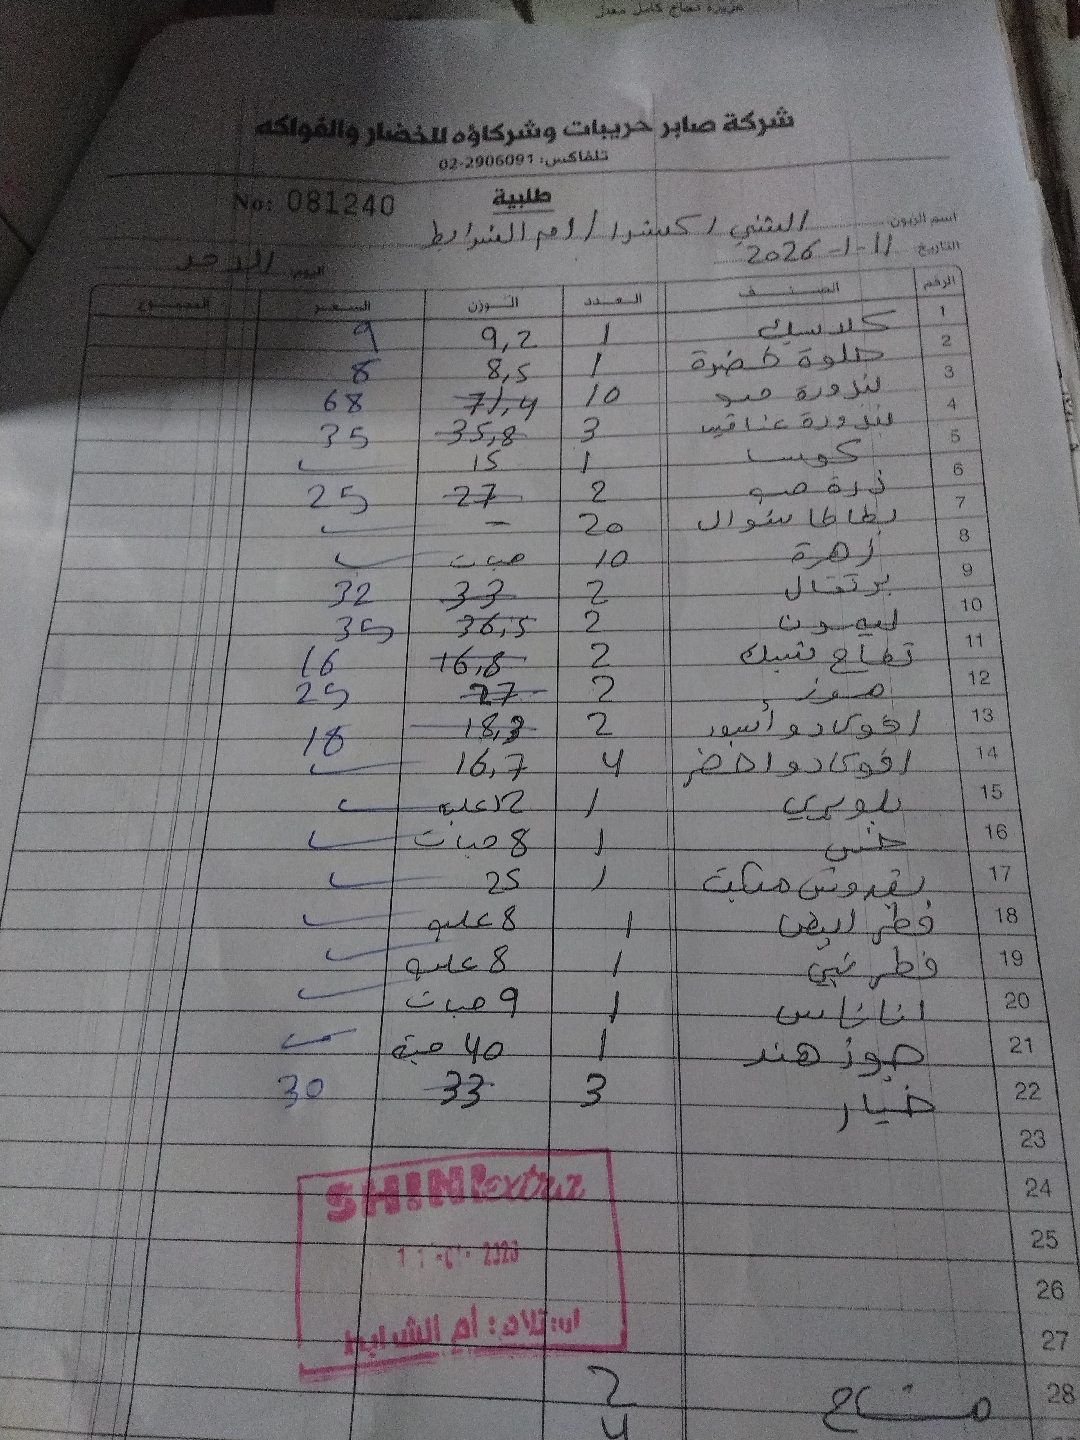 شركة صابر حريبات وشركاؤه للخضار والفواكه
تلفاكس: 02-2906091
طلبية
No: 081240
اسم الزبون الشني اكسترا / ام الشرايط
التاريخ 11-1-2026 اليوم الاحد
الرقم الصنف العدد الوزن السعر المجموع
1 كلاسيك 1 9,2 9
2 حلوة خضرة 1 8,5 8
3 بندورة حبو 10 71,4 68
4 بندورة عناقيد 3 35,8 35
5 كوسا 1 15
6 ذرة حبو 2 27 25
7 بطاطا شوال 20 -
8 زهرة 10 حبات
9 برتقال 2 33 32
10 ليمون 2 36,5 35
11 تفاح شبك 2 16,8 16
12 موز 2 27 25
13 افوكادو أسود 2 18,3 18
14 افوكادو اخضر 4 16,7
15 بلوبري 1 12 علبه
16 خس 1 8 حبات
17 بقدونس 1 25
18 فطر ابيض 1 8 علبه
19 فطر بني 1 8 علبه
20 اناناس 1 9 حبات
21 جوز هند 1 40 حبة
22 خيار 3 33 30
23
24
25
26
27
28 2
4
SHINI extra
استلام: أم الشرايط